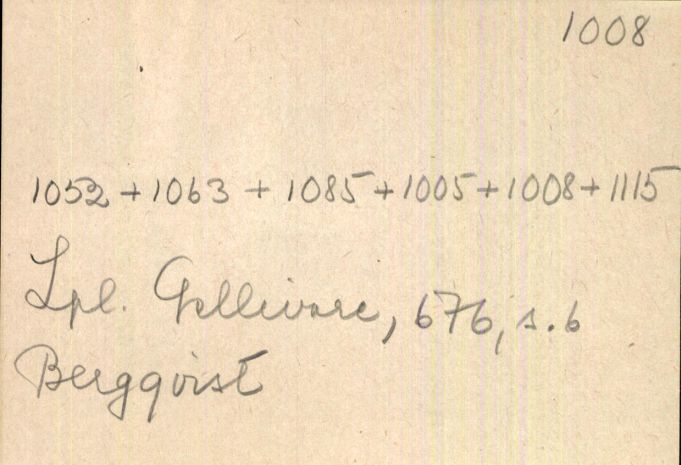 1008
1052 + 1063 + 1085 + 1005 + 1008 + 1115
Lpl. Gellivare, 676, s. 6
Bergqvist